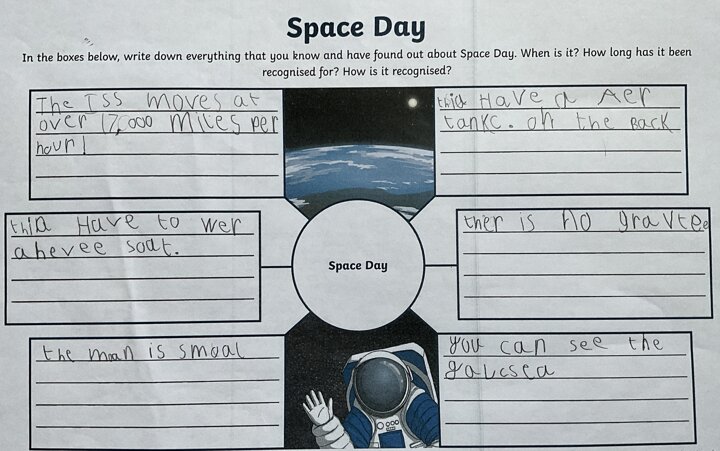 Space Day
In the boxes below, write down everything that you know and have found out about Space Day. When is it? How long has it been
recognised for? How is it recognised?
The ISS moves at
over 17,000 Miles per
hour!
thia Have a Aer
tankc. oh the Back
thia Have to wer
a hevee soat.
ther is no gravtee
Space Day
the moan is smoal
you can see the
galicsea